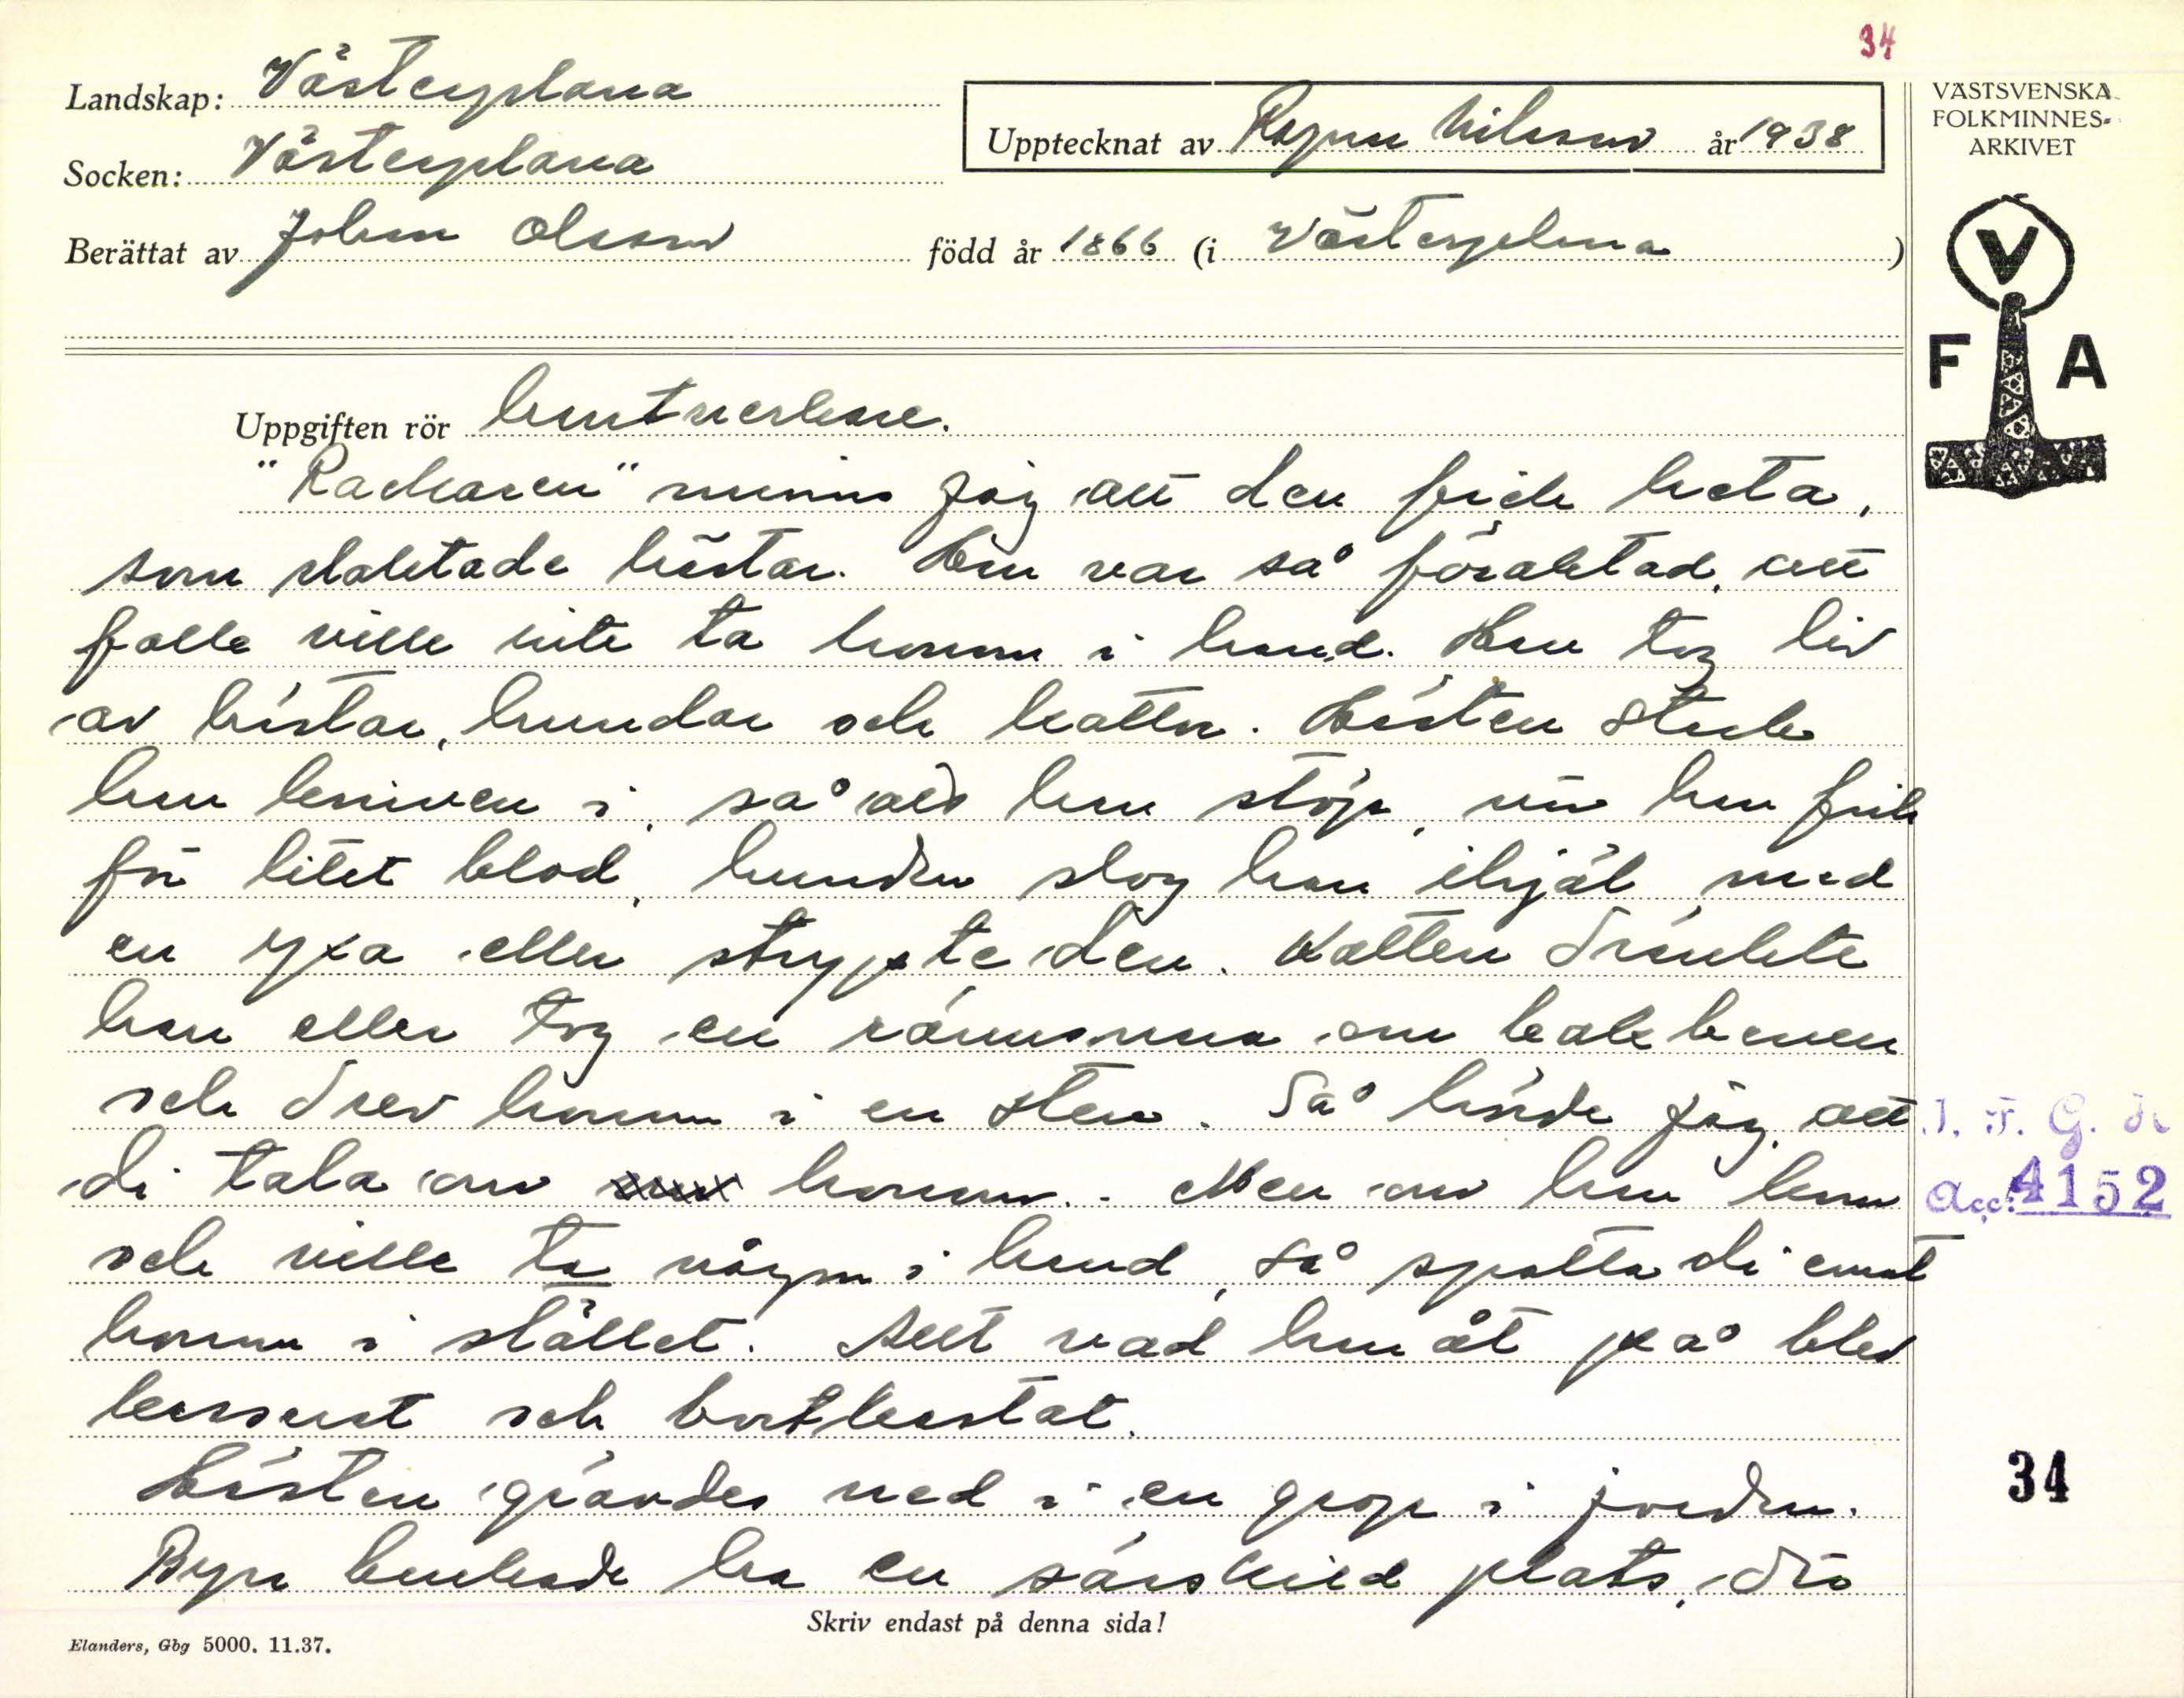 34
Landskap: Västerplana
Socken: Västerplana
Berättat av Johan Olsson född år 1866 (i Västerplana)
Upptecknat av Ragnar Nilsson år 1938
VÄSTSVENSKA
FOLKMINNES-
ARKIVET
V
F A
Uppgiften rör hantverkare.
"Rackaren" minns jag att den fick heta,
som slaktade hästar. Han var så föraktad, att
folk ville inte ta honom i hand. Han tog liv
av hästar, hundar och katter. Hästen stack
han kniven i, så att han stöp, när han fick
för litet blod, hunden slog han ihjäl med
en yxa eller strypte den. Katten dränkte
han eller tog en rännsnara om bakbenen
och drev honom i en sten. Så hörde jag, att
di tala om honom. Men om han kom
och ville ta någon i hand, så spotta di emot
honom i stället. Allt vad han åt på blev
kasserat och bortkastat.
Hästen grävdes ned i en grop i jorden.
Byn brukade ha en särskild plats, där
Skriv endast på denna sida!
Elanders, Gbg 5000. 11.37.
I. F. G.
Acc: 4152
34